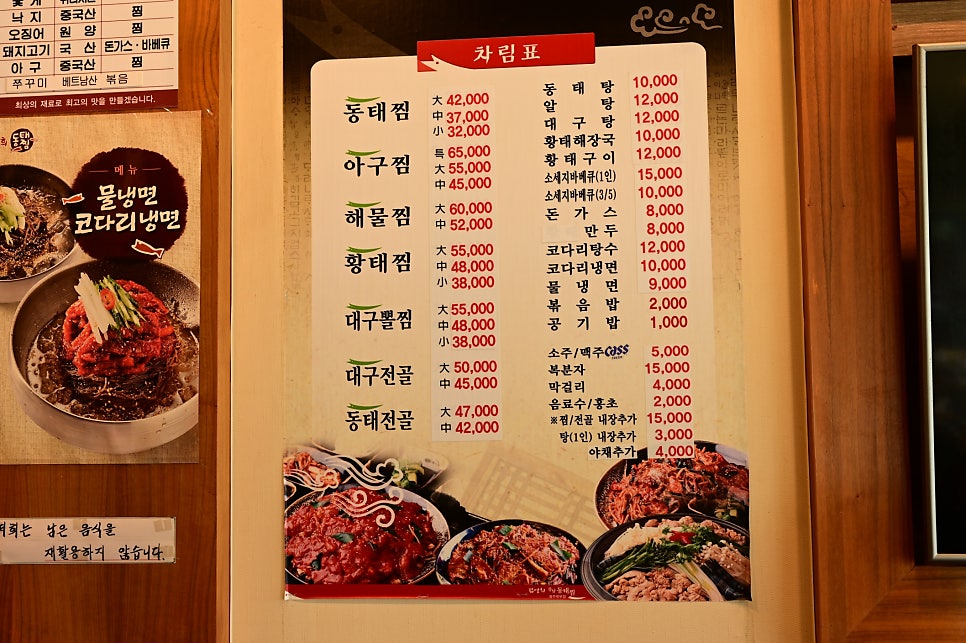 낙지 중국산 찜
오징어 원양 찜
돼지고기 국산 돈가스·바베큐
아구 중국산 찜
쭈꾸미 베트남산 볶음
최상의 재료로 최고의 맛을 만들겠습니다.
메뉴
물냉면
코다리냉면
저희는 남은 음식을
재활용하지 않습니다.
차림표
동태찜 大 42,000
中 37,000
小 32,000
아구찜 特 65,000
大 55,000
中 45,000
해물찜 大 60,000
中 52,000
황태찜 大 55,000
中 48,000
小 38,000
대구뽈찜 大 55,000
中 48,000
小 38,000
대구전골 大 50,000
中 45,000
동태전골 大 47,000
中 42,000
동태탕 10,000
알탕 12,000
대구탕 12,000
황태해장국 10,000
황태구이 12,000
소세지바베큐(1인) 15,000
소세지바베큐(3/5) 10,000
돈가스 8,000
만두 8,000
코다리탕수 12,000
코다리냉면 10,000
물냉면 9,000
볶음밥 2,000
공기밥 1,000
소주/맥주 Cass 5,000
복분자 15,000
막걸리 4,000
음료수/홍초 2,000
※찜/전골 내장추가 15,000
탕(1인) 내장추가 3,000
야채추가 4,000